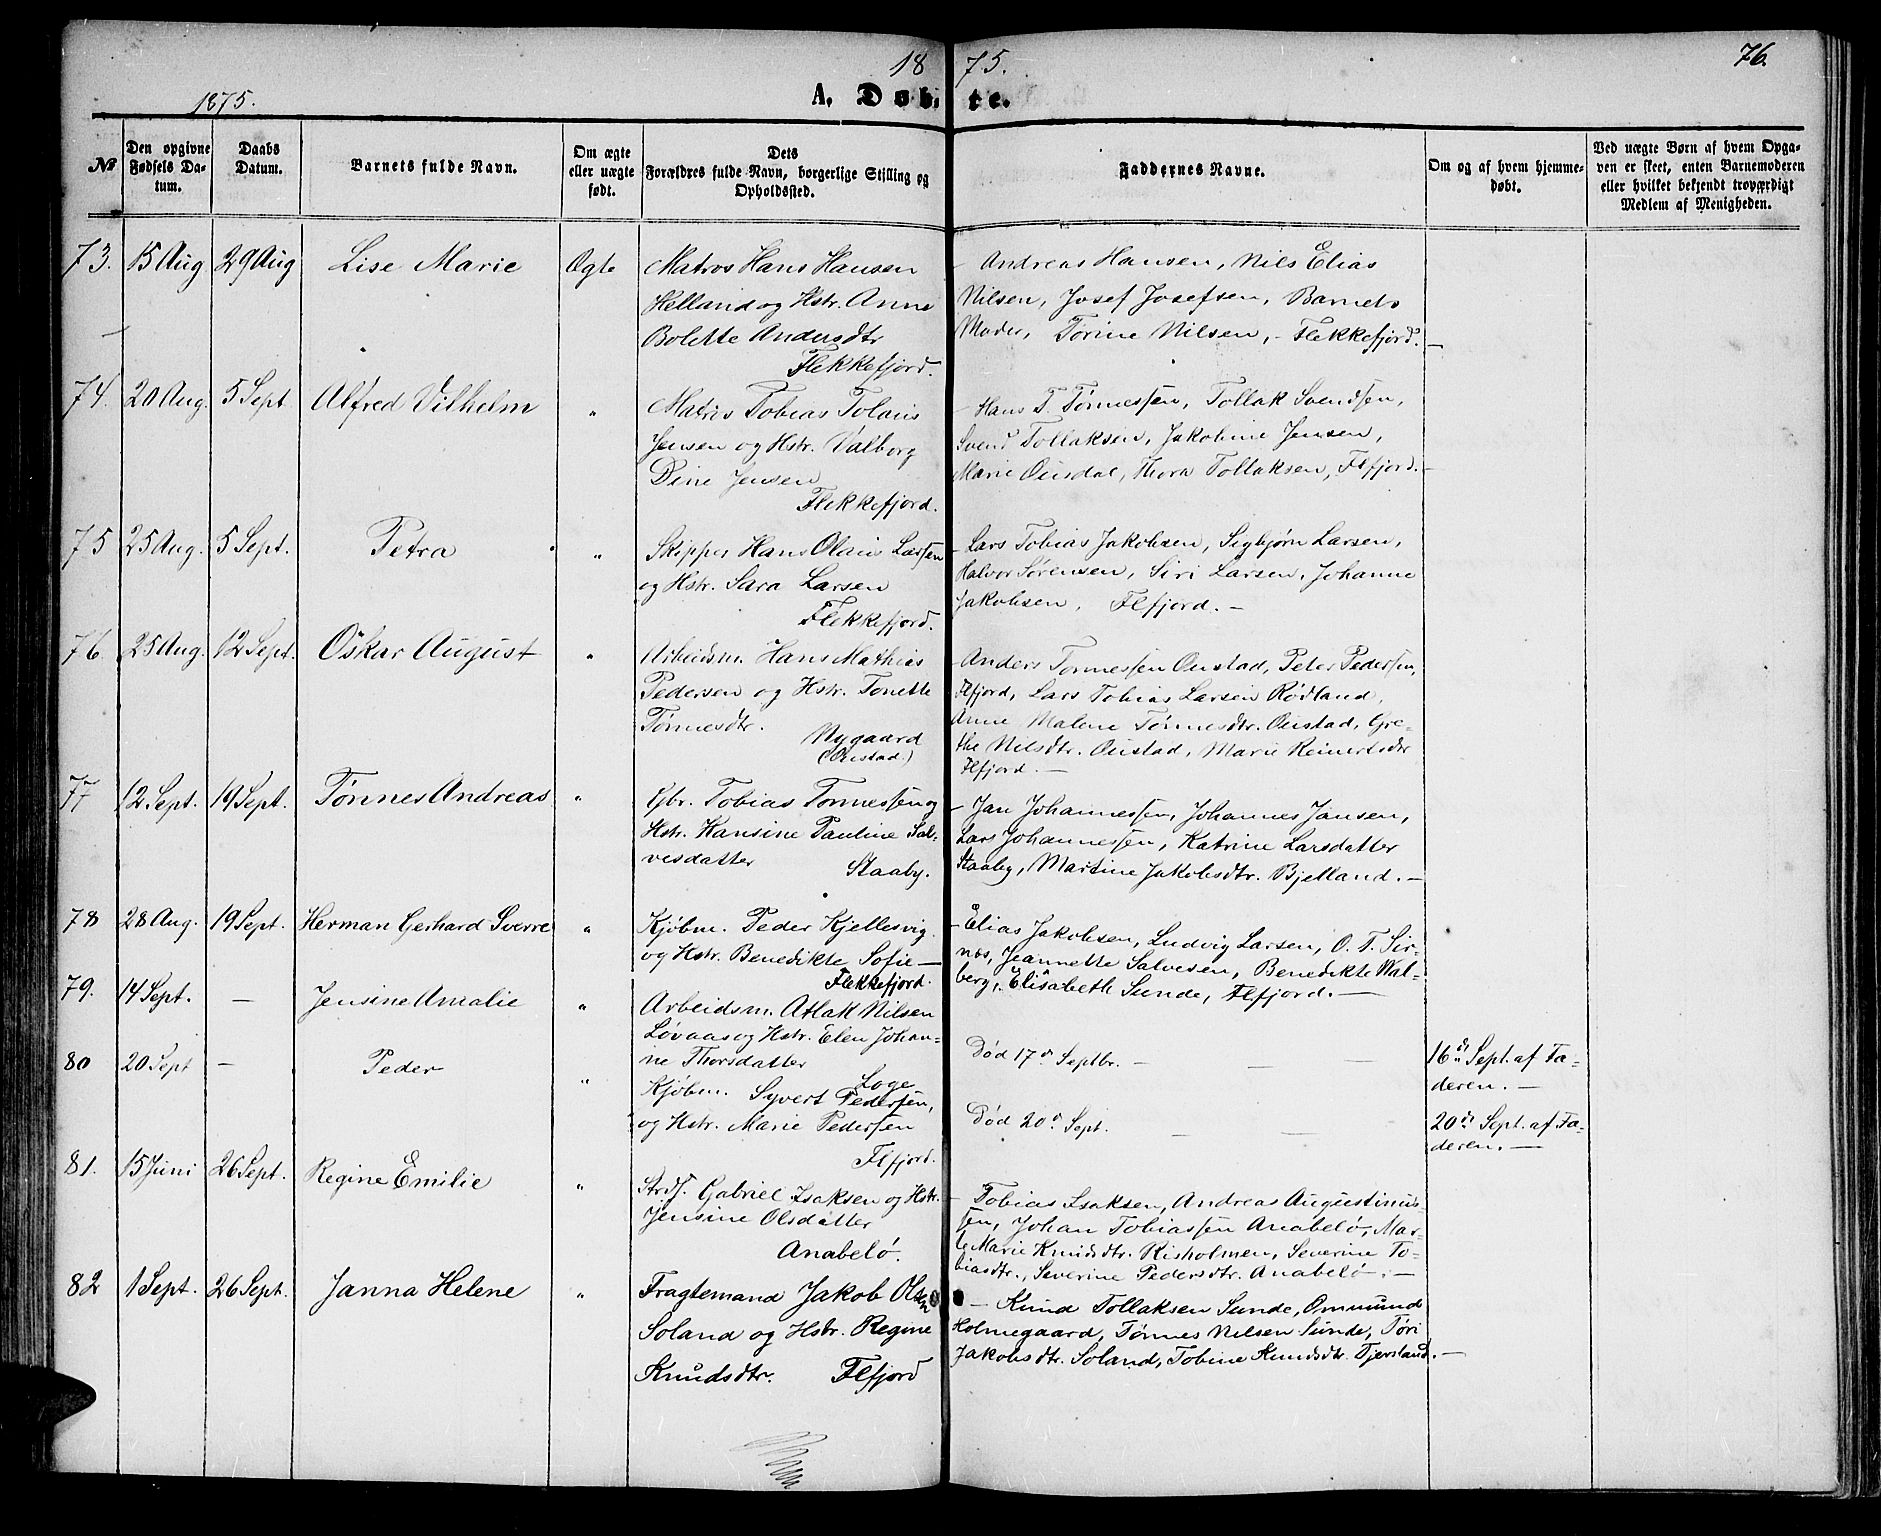 18 75.
76.
1875.
A. Døbte.
№
Den opgivne Fødsels Datum.
Daabs Datum.
Barnets fulde Navn.
Om ægte eller uægte født.
Dets Forældres fulde Navn, borgerlige Stilling og Opholdssted.
Faddernes Navne.
Om og af hvem hjemmedøbt.
Ved uægte Børn af hvem Opgaven er skeet, enten Barnemoderen eller hvilket bekjendt troværdigt Medlem af Menigheden.
73. 15 Aug 29 Aug Lise Marie Ægte
Matros Hans Hansen
Helland og Hstr. Anne
Bolette Andersdtr
Flekkefjord.
- Andreas Hansen, Nils Elias
Nilsen, Josef Josefsen, Barnets
Moder, Torine Nilsen, - Flekkefjord. -
74. 20 Aug. 5 Sept Alfred Vilhelm "
Matros Tobias Tolaus
Jensen og Hstr. Valborg
Dine Jensen
Flekkefjord.
- Hans T. Tønnessen, Tollak Svendsen,
Svend Tollaksen, Jakobine Jensen,
Marie Ousdal, Thora Tollaksen, Flfjord. -
75 25 Aug. 5 Sept. Petra "
Skipper Hans Olaus Larsen
og Hstr. Sara Larsen
Flekkefjord.
- Lars Tobias Jakobsen, Sigbjørn Larsen,
Halvor Sørensen, Siri Larsen, Johanne
Jakobsen, Flfjord. -
76. 25 Aug. 12 Sept. Oskar August "
Arbeidsm. Hans Mathias
Pedersen og Hstr. Tonette
Tønnesdtr.
Nygaard
(Oustad.)
- Anders Tønnessen Oustad, Peter Pedersen,
Flfjord, Lars Tobias Larsen Rødland,
Anne Malene Tønnesdtr. Oustad, Gre-
the Nilsdtr. Oustad, Marie Reinertsdtr
Flfjord. -
77 12 Sept. 19 Sept. Tønnes Andreas "
Gbr. Tobias Tønnessen og
Hstr. Hansine Pauline Sal-
vesdatter
Staaby.
- Jan Johannessen, Johannes Jansen,
Lars Johannessen, Katrine Larsdatter
Staaby, Martine Jakobsdtr. Bjelland. -
78 28 Aug. 19 Sept. Herman Gerhard Sverre "
Kjøbm. Peder Kjellesvig
og Hstr. Benedikte Sofie -
Flekkefjord.
- Elias Jakobsen, Ludvig Larsen, O. T. Sir-
nes, Jeannette Salvesen, Benedikte Wal-
berg, Elisabeth Sunde, Flfjord. -
79. 14 Sept. - Jensine Amalie "
Arbeidsm. Atlak Nilsen
Løvaas og Hstr. Elen Johan-
ne Thorsdatter
Loge
Død 17de Septbr. - - -
16de Sept. af Fa-
deren. -
80 20 Sept - Peder "
Kjøbm. Syvert Pedersen,
og Hstr. Marie Pedersen
Flfjord.
Død 20de Sept. - -
20de Sept. af Fa-
deren. -
81. 15 Juni 26 Sept. Regine Emilie "
Strds. Gabriel Isaksen og Hstr.
Jensine Olsdatter
Anabelø.
- Tobias Isaksen, Andreas Augustinus-
sen, Johan Tobiassen Anabelø, Mar-
te Marie Knudsdtr. Risholmen, Severine To-
biasdtr., Severine Pedersdtr. Anabelø. -
82 1 Sept. 26 Sept. Janna Helene "
Fragtemand Jakob Olsen
Soland og Hstr. Regine
Knudsdtr. Flfjord
- Knud Tollaksen Sunde, Ommund
Holmegaard, Tønnes Nilsen Sunde, Tøri
Jakobsdtr. Soland, Tobine Knudsdtr. Tjersland. -